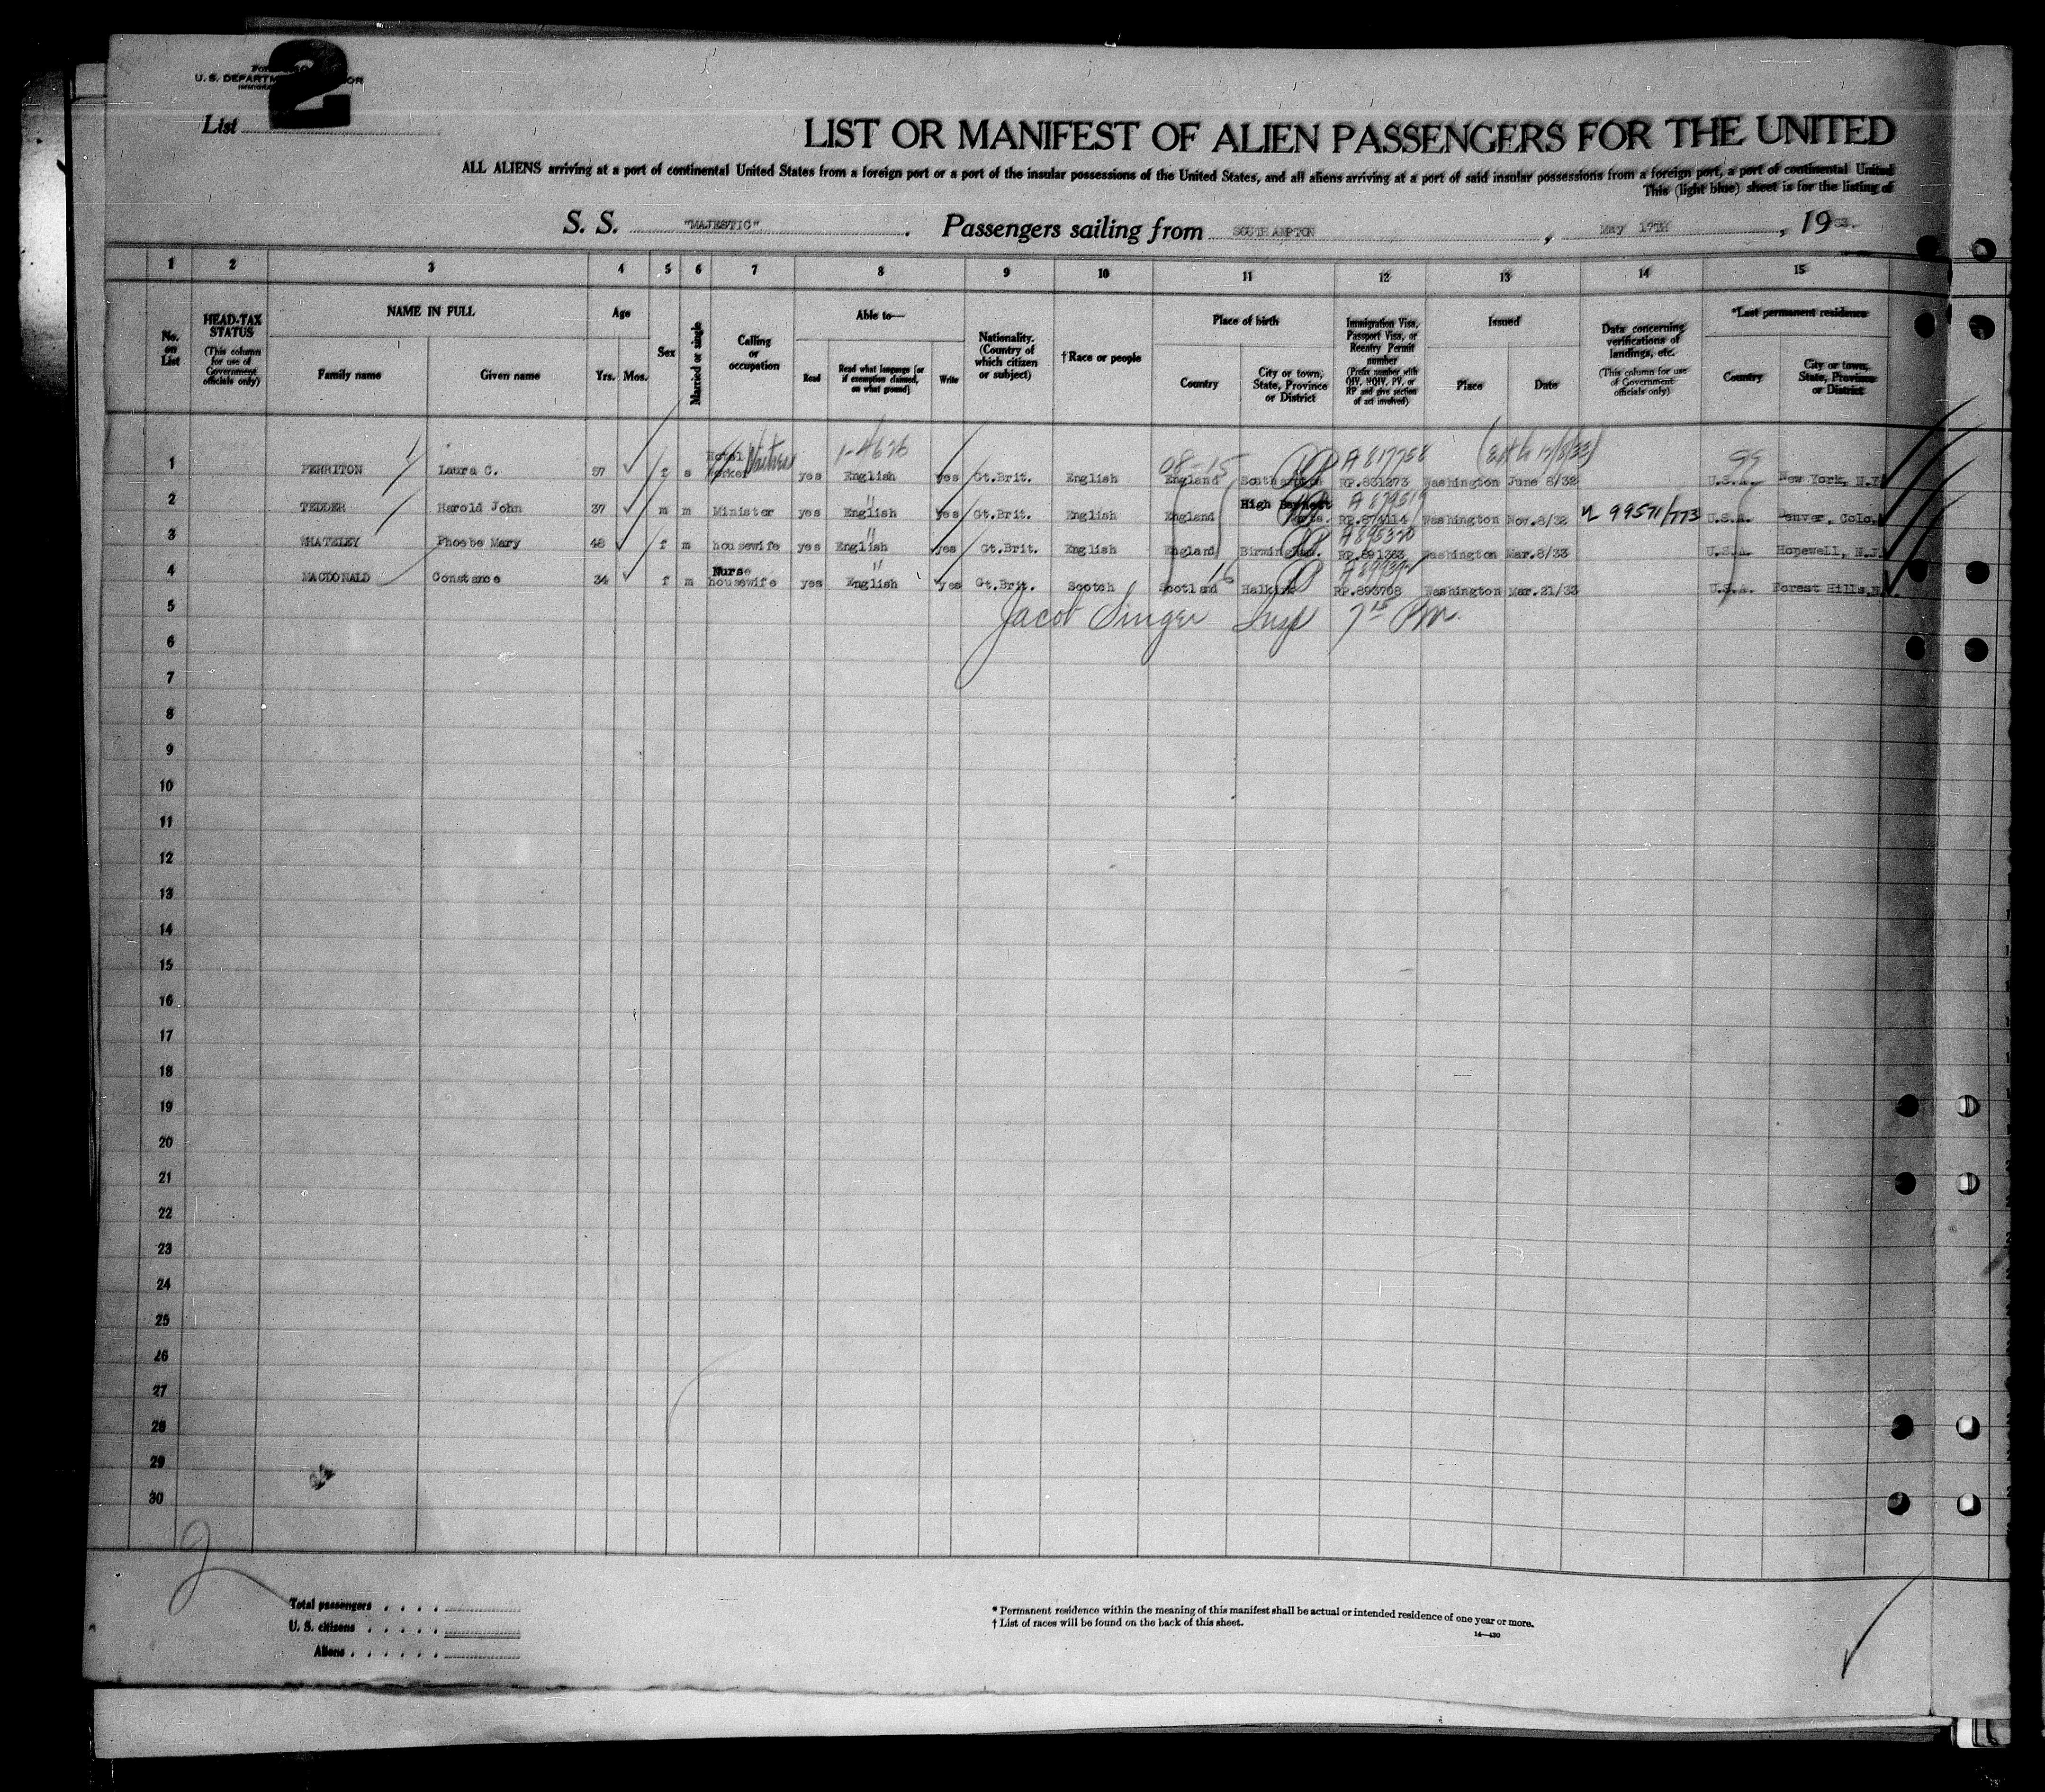 2
U. S. DEPARTM OR
List
LIST OR MANIFEST OF ALIEN PASSENGERS FOR THE UNITED
ALL ALIENS arriving at a port of continental United States from a foreign port or a port of the insular possessions of the United States, and all aliens arriving at a port of said insular possessions from a foreign port, a port of continental United
This (light blue) sheet is for the listing of
S. S. "MAJESTIC". Passengers sailing from SOUTHAMPTON, May 17TH, 1933.
1 2 3 4 5 6 7 8 9 10 11 12 13 14 15
No. on List
HEAD-TAX STATUS (This column for use of Government officials only)
NAME IN FULL
Family name Given name
Age
Yrs. Mos.
Sex
Married or single
Calling or occupation
Able to—
Read Read what language [or if exemption claimed, on what ground] Write
Nationality. (Country of which citizen or subject)
† Race or people
Place of birth
Country City or town, State, Province or District
Immigration Visa, Passport Visa, or Reentry Permit number (Prefix number with QIV, NQIV, PV, or RP and give section of act involved)
Issued
Place Date
Data concerning verifications of landings, etc. (This column for use of Government officials only)
*Last permanent residence
Country City or town, State, Province or District
Hotel Waitress 1-4676 08-15 A 817758 99
1 PERRITON Laura C. 37 f s worker yes English yes Gt.Brit. English England Southampton RP.831273 Washington June 8/32 U.S.A. New York, N.Y.
" High
2 TEDDER Harold John 37 m m Minister yes English yes Gt.Brit. English England RP.874114 Washington Nov.8/32 99571/773 U.S.A. Denver, Colo.
" A 895320
3 WHATELEY Phoebe Mary 48 f m housewife yes English yes Gt.Brit. English England Birmingham. RP.891363 Washington Mar.8/33 U.S.A. Hopewell, N.J.
Nurse " 16
4 MACDONALD Constance 34 f m housewife yes English yes Gt.Brit. Scotch Scotland Halkirk RP.893768 Washington Mar.21/33 U.S.A. Forest Hills,
Jacob Singer Insp 7 15 PM.
5
6
7
8
9
10
11
12
13
14
15
16
17
18
19
20
21
22
23
24
25
26
27
28
29
30
2
Total passengers . . . .
U. S. citizens . . . . .
Aliens . . . . . .
* Permanent residence within the meaning of this manifest shall be actual or intended residence of one year or more.
† List of races will be found on the back of this sheet.
14—430